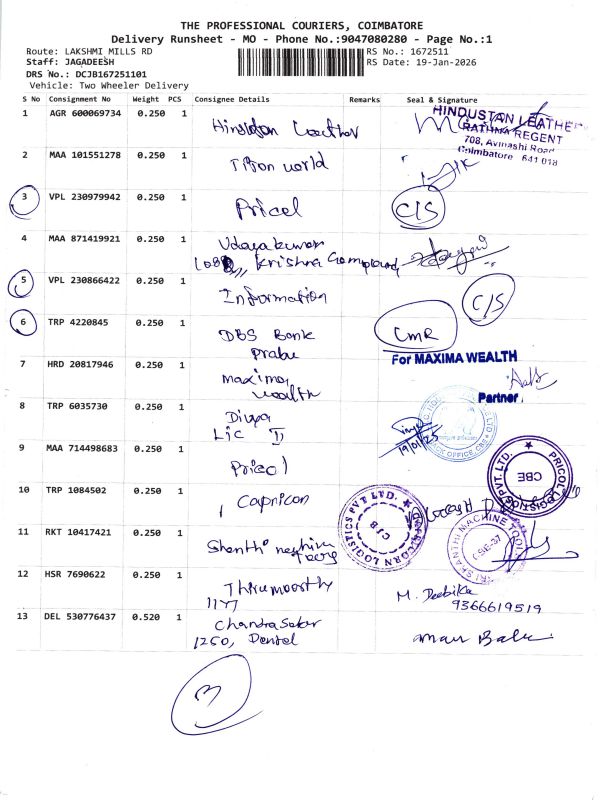 THE PROFESSIONAL COURIERS, COIMBATORE
Delivery Runsheet - MO - Phone No.:9047080280 - Page No.:1
Route: LAKSHMI MILLS RD
RS No.: 1672511
Staff: JAGADEESH
RS Date: 19-Jan-2026
DRS No.: DCJB167251101
Vehicle: Two Wheeler Delivery
S No Consignment No Weight PCS Consignee Details Remarks Seal & Signature
1 AGR 600069734 0.250 1 Hindustan Leather
HINDUSTAN LEATHER
RATHNA REGENT
708, Avinashi Road
Coimbatore 641 018
2 MAA 101551278 0.250 1 Titan world
3 VPL 230979942 0.250 1 Pricol C/S
4 MAA 871419921 0.250 1 Udayakumar
Krishna Compound
5 VPL 230866422 0.250 1 Information C/S
6 TRP 4220845 0.250 1 DBS Bank CMR
Prabu
7 HRD 20817946 0.250 1 Maxima
wealth
For MAXIMA WEALTH
Partner
8 TRP 6035730 0.250 1 Divya
LIC II
19/01/25
9 MAA 714498683 0.250 1 Pricol
PRICOL LOGISTICS PVT. LTD.
CBE
10 TRP 1084502 0.250 1 Capricon
LOGISTICS PVT LTD.
CJB
11 RKT 10417421 0.250 1 Shanthi
SRI SHANTHI MACHINE TOOLS
12 HSR 7690622 0.250 1 Thirumoorthy
M. Deebika
9366619519
13 DEL 530776437 0.520 1 Chandrasekar
1250, Dental